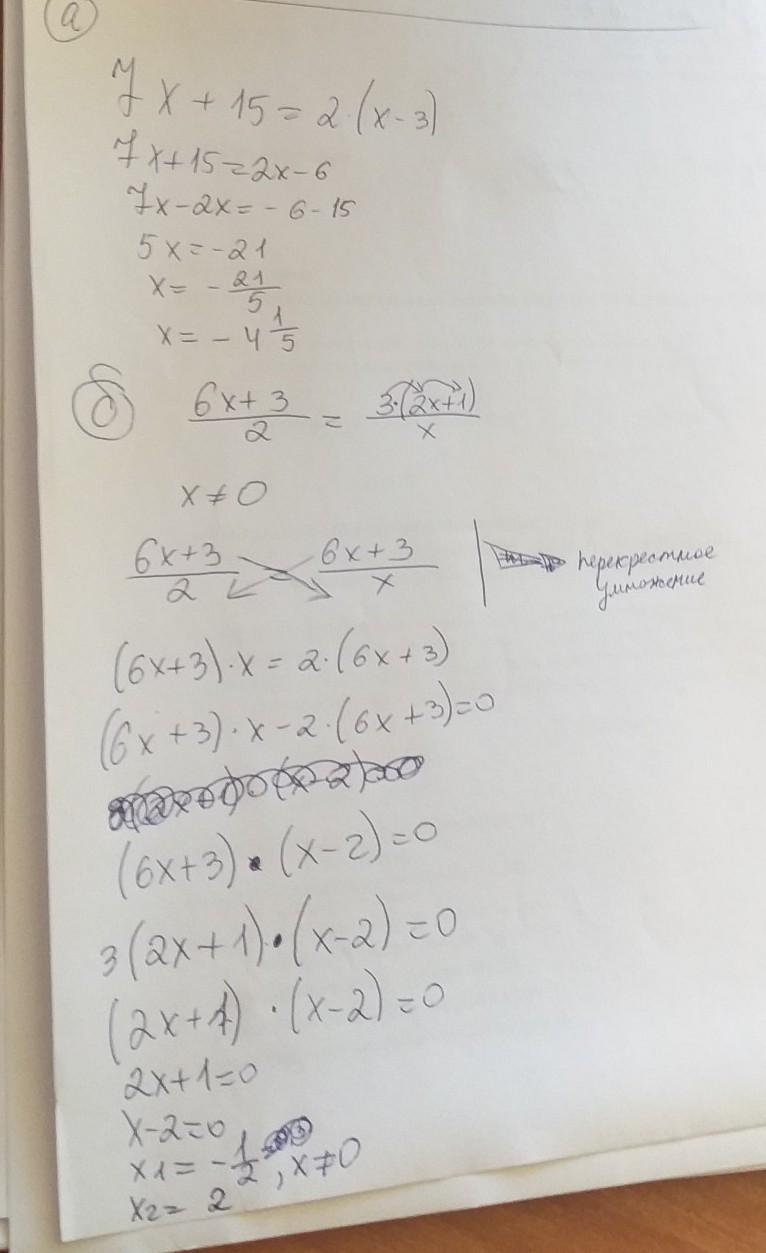 а
7x + 15 = 2·(x-3)
7x+15=2x-6
7x-2x=-6-15
5x=-21
x= -21/5
x=-4 1/5
б
(6x+3)/2 = 3·(2x+1)/x
x≠0
(6x+3)/2 = (6x+3)/x | перекрестное
умножение
(6x+3)·x=2·(6x+3)
(6x+3)·x-2·(6x+3)=0
(6x+3)·(x-2)=0
3(2x+1)·(x-2)=0
(2x+1)·(x-2)=0
2x+1=0
x-2=0
x1=-1/2, x≠0
x2= 2